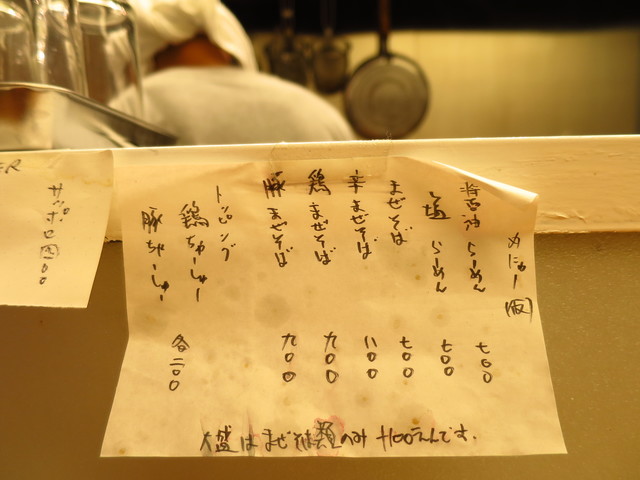 めにゅー(仮)
醤油らーめん 七〇〇
塩らーめん 七〇〇
まぜそば 七〇〇
辛まぜそば 八〇〇
鶏まぜそば 九〇〇
豚まぜそば 九〇〇
トッピング
鶏ちゅーしゅー 各二〇〇
豚ちゅーしゅー
大盛はまぜそば類のみ+100えんです.
ER
サッポロ